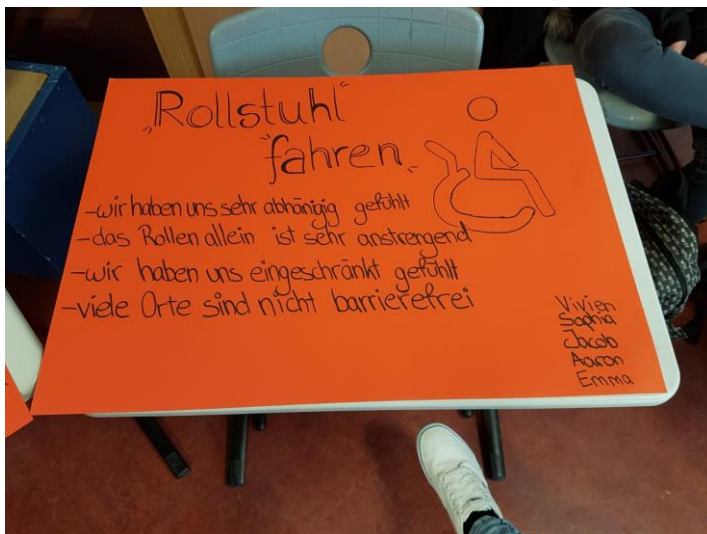 „Rollstuhl"
"fahren„
-wir haben uns sehr abhängig gefühlt
-das Rollen allein ist sehr anstrengend
-wir haben uns eingeschränkt gefühlt
-viele Orte sind nicht barrierefrei
Vivien
Sophia
Jacob
Aaron
Emma